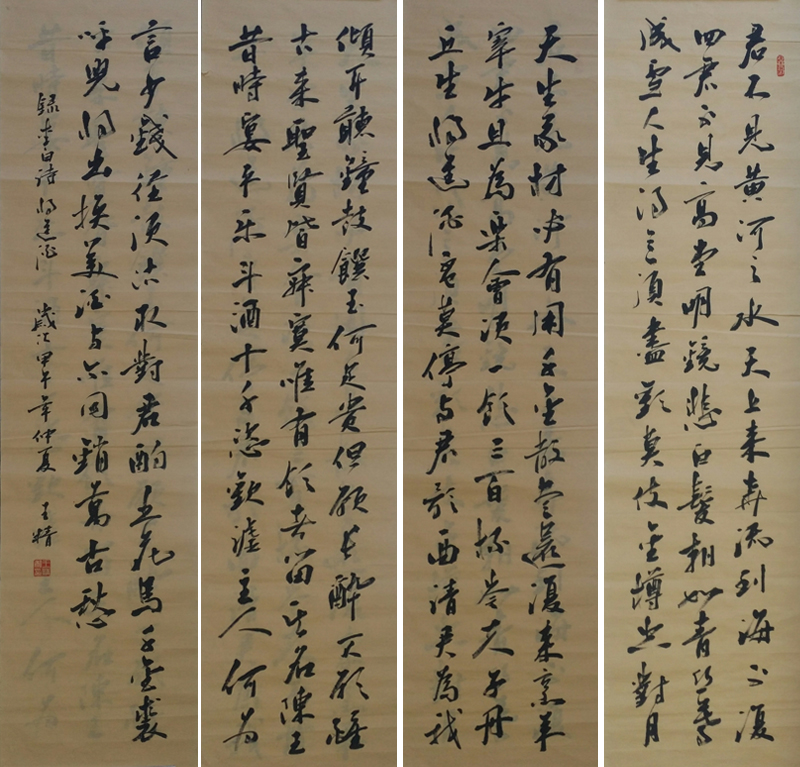 君不見黃河之水天上来奔流到海不復
回君不見高堂明鏡悲白髮朝如青絲暮
成雪人生得意須盡歡莫使金樽空對月
天生我材必有用千金散盡還復来烹羊
宰牛且為樂會須一飲三百杯岑夫子丹
丘生將進酒君莫停与君歌一曲請君為我
傾耳聽鐘鼓饌玉何足貴但願長醉不願醒
古来聖賢皆寂寞唯有飲者留其名陳王
昔時宴平樂斗酒十千恣歡謔主人何為
言少錢徑須沽取對君酌五花馬千金裘
呼兒將出換美酒与尔同銷萬古愁
録李白詩將進酒 歲次甲午年仲夏 王精